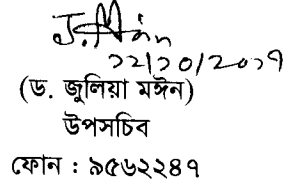 ২২/১০/২০১৭
(ড. জুলিয়া মঈন)
উপসচিব
ফোন : ৯৫৬২২৪৭